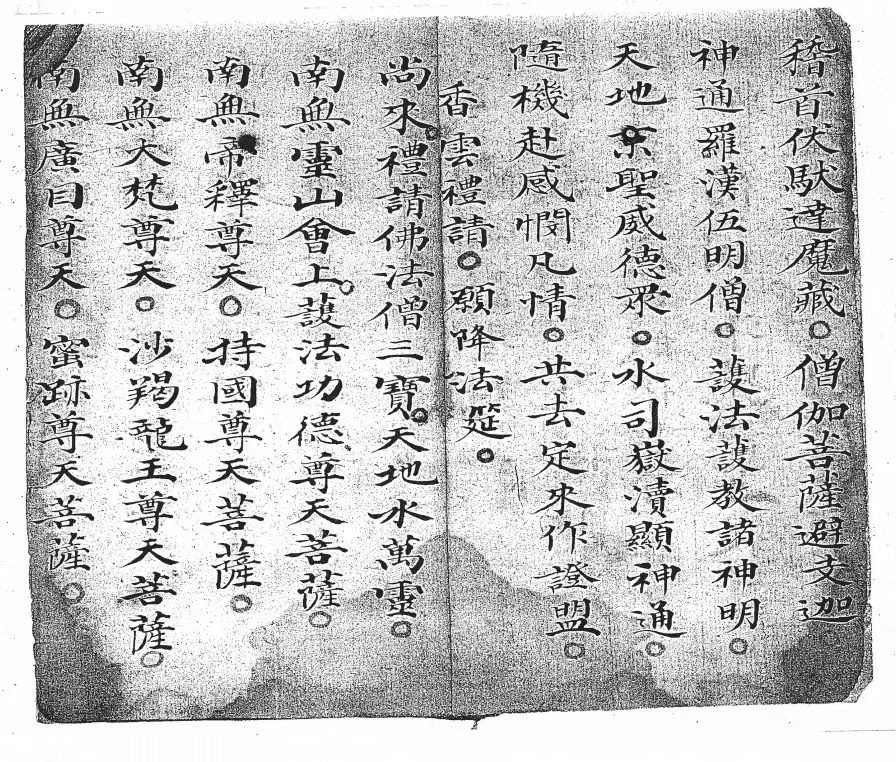 稽首伏馱達魔藏○僧伽菩薩避支迦
神通羅漢伍明僧○護法護教諸神明
天地京聖威德眾○水司嶽瀆顯神通
隨機赴感憫凡情○共去定來作證盟○
香雲禮請○願降法筵○
尚來禮請佛法僧三寶○天地水萬靈○
南無靈山會上護法功德尊天菩薩○
南無帝釋尊天○持國尊天菩薩○
南無大梵尊天○沙羯龍王尊天菩薩○
南無廣目尊天○蜜跡尊天菩薩○